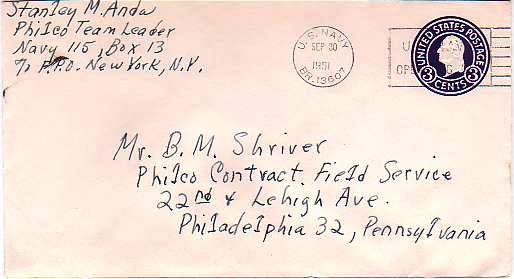 Stanley M. Anda
Philco Team Leader
Navy 115, Box 13
c/o F.P.O. New York, N.Y.
U.S. NAVY
SEP 30
1951
BR. 13607
UNITED STATES POSTAGE
3 CENTS 3
Mr. B. M. Shriver
Philco Contract Field Service
22nd & Lehigh Ave.
Philadelphia 32, Pennsylvania